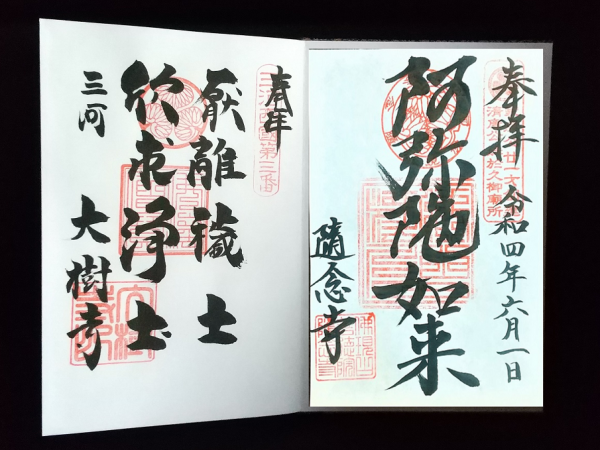 奉拝
令和四年六月一日
阿弥陀如来
随念寺
奉拝
厭離穢土
欣求浄土
三河
大樹寺